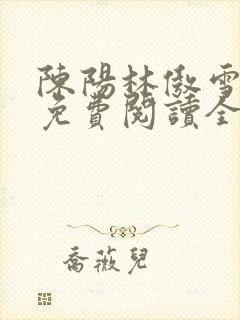 陳陽林傲雪
免費閱讀全
喬薇兒